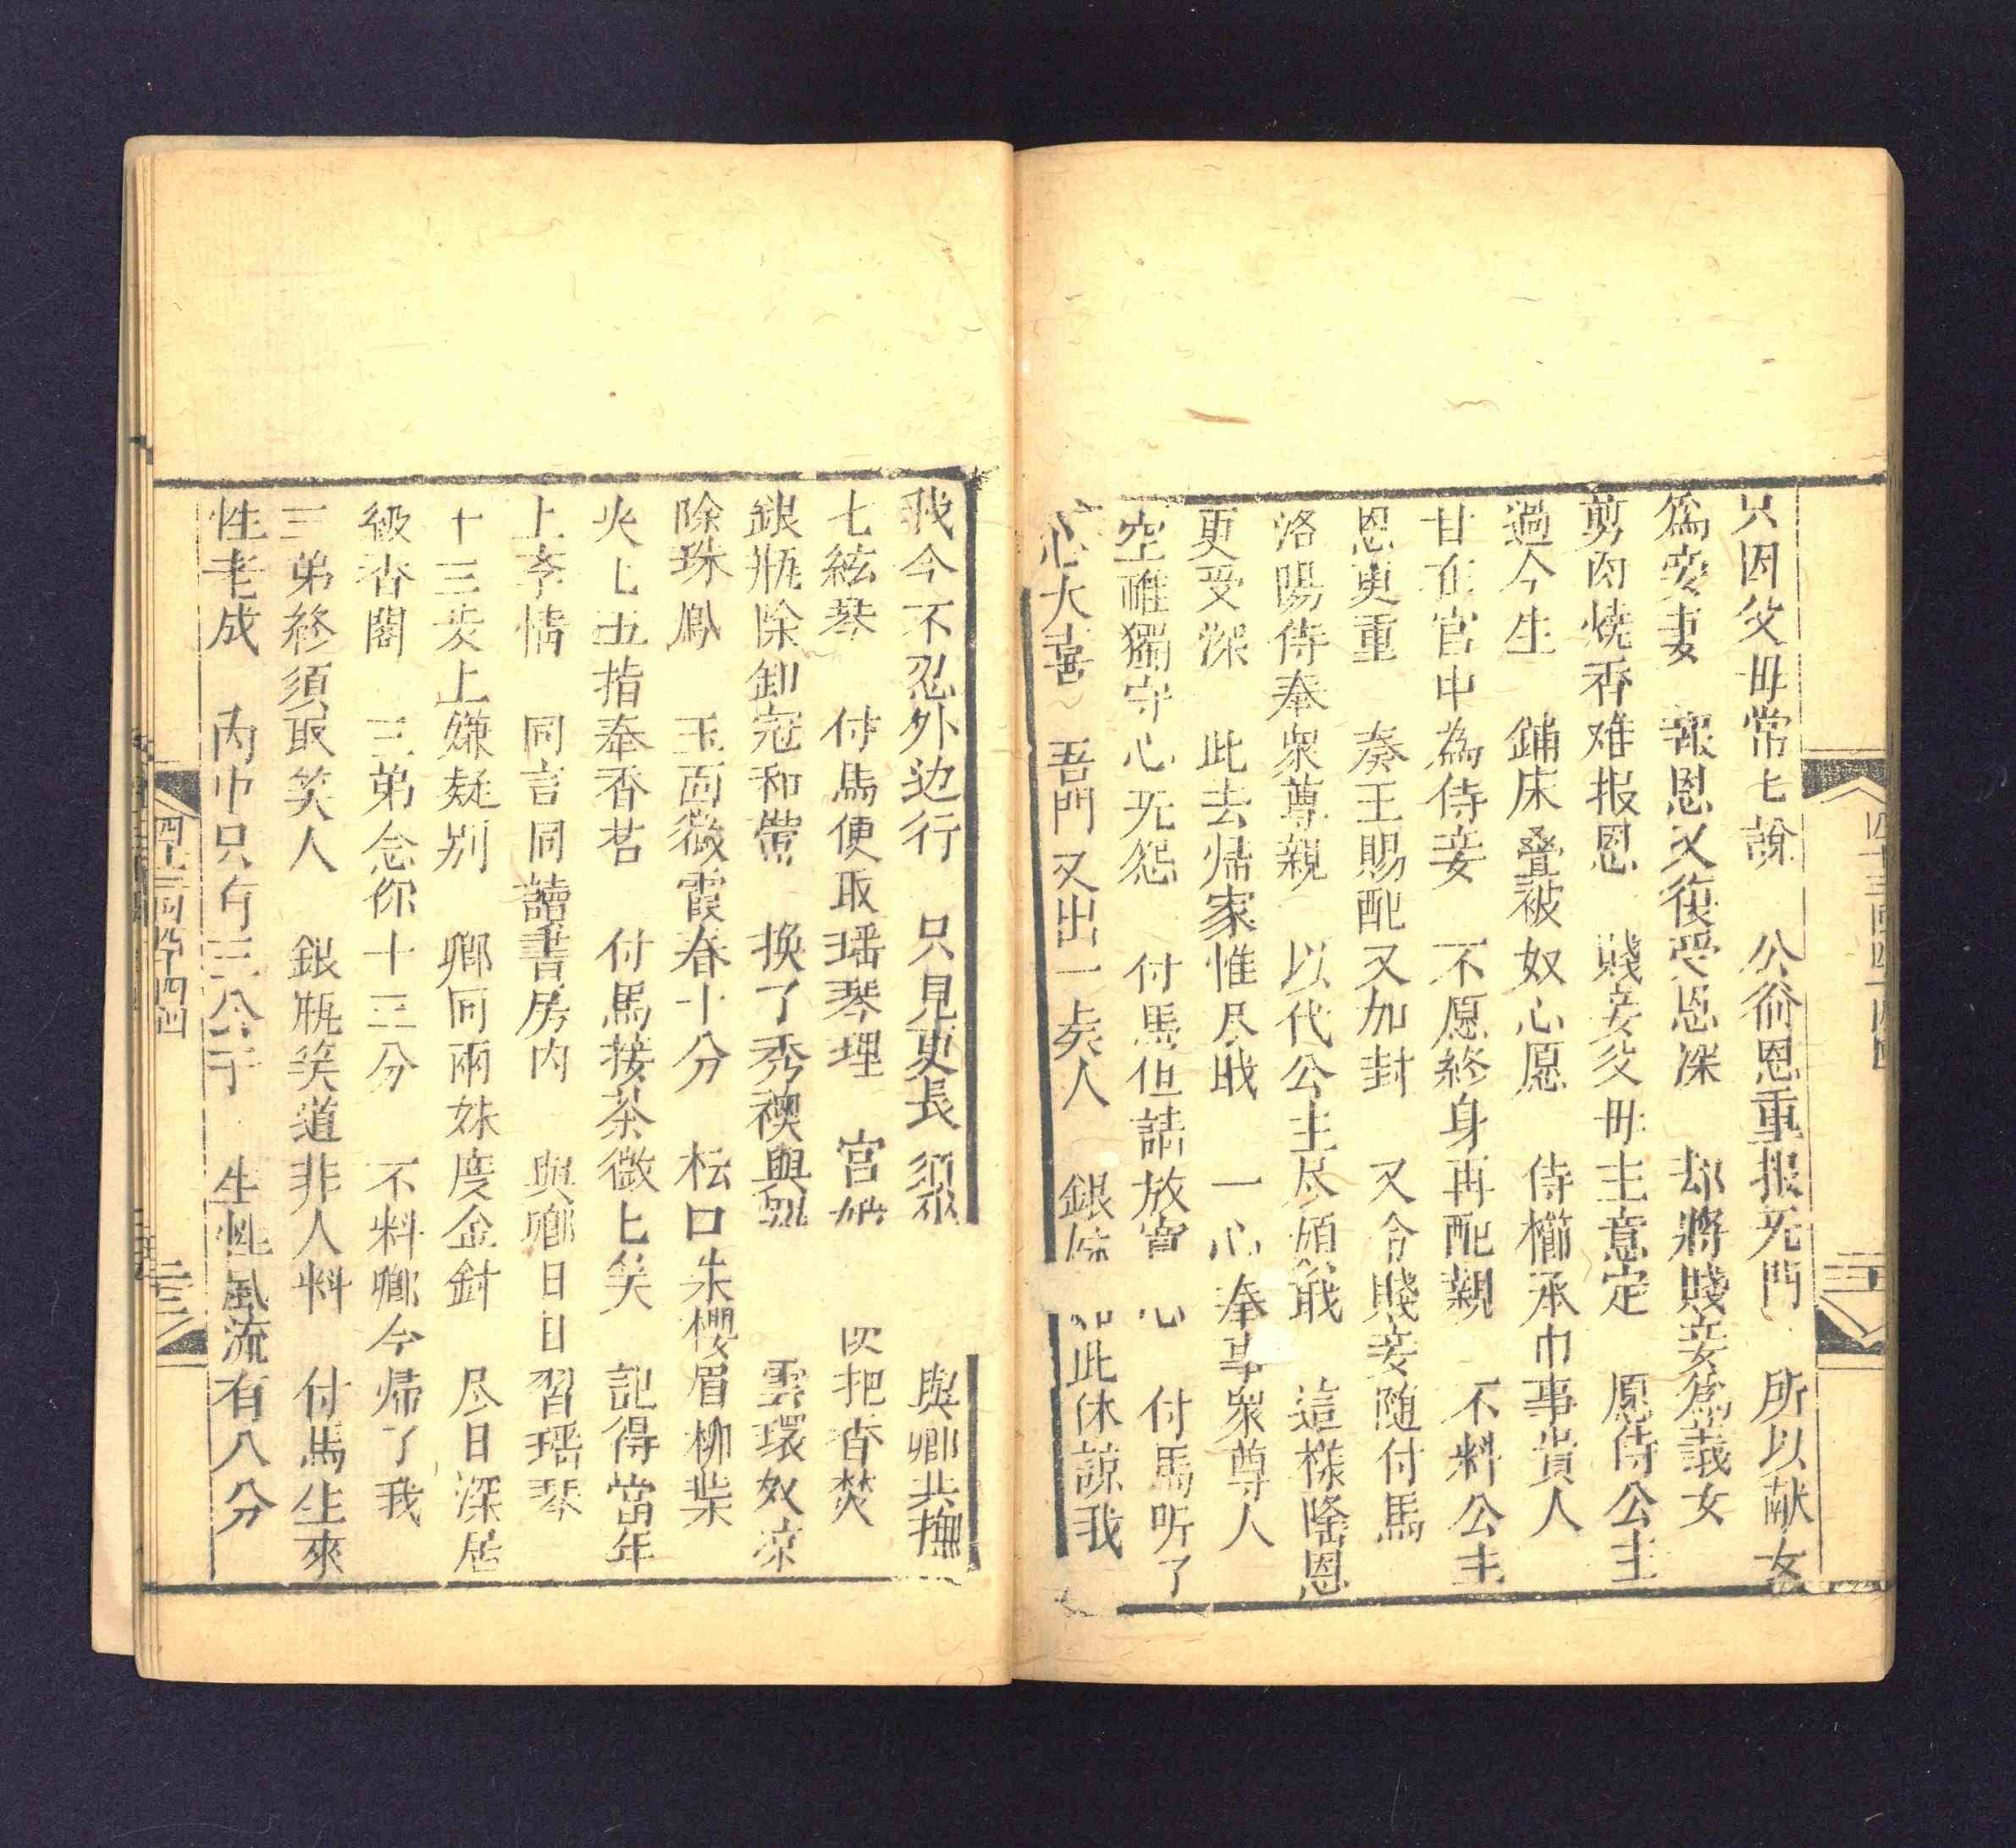 只因父母常匕說 公爺恩重报死門 所以献女
為妾妻 報恩又復受恩深 却將賤妾為義女
剪肉燒香难报恩 賤妾父母主意定 愿侍公主
過今生 鋪床疊被奴心愿 侍櫛承巾事貴人
甘在宫中為侍妾 不愿終身再配親 不料公主
恩更重 奏王賜配又加封 又令賤妾随付馬
洛陽侍奉衆尊親 以代公主尽頫戢 這樣隆恩
更受深 此去帰家惟尽戢 一心奉事衆尊人
空帷獨守心死怨 付馬但請放寬心 付馬听了
心大喜 吾門又出一矣人 銀 此休諒我
我今不忍外边行 只見更長須 與卿共撫
七絃琴 付馬便取瑶琴理 宫 把香焚
銀瓶除卸冠和帶 換了秀襖與 雲環奴凉
除珠鳳 玉面微霞春十分 枟口朱櫻眉柳柴
火匕五指奉香茗 付馬接茶微匕笑 記得當年
上李情 同言同讀書房内 與卿日日習瑶琴
十三岁上嫌疑别 卿同兩妹度金針 尽日深居
级香閣 三弟念你十三分 不料卿今帰了我
三弟終須取笑人 銀瓶笑道非人料 付馬生來
性老成 内中只有三公子 生性風流有八分
四十三回四十四回